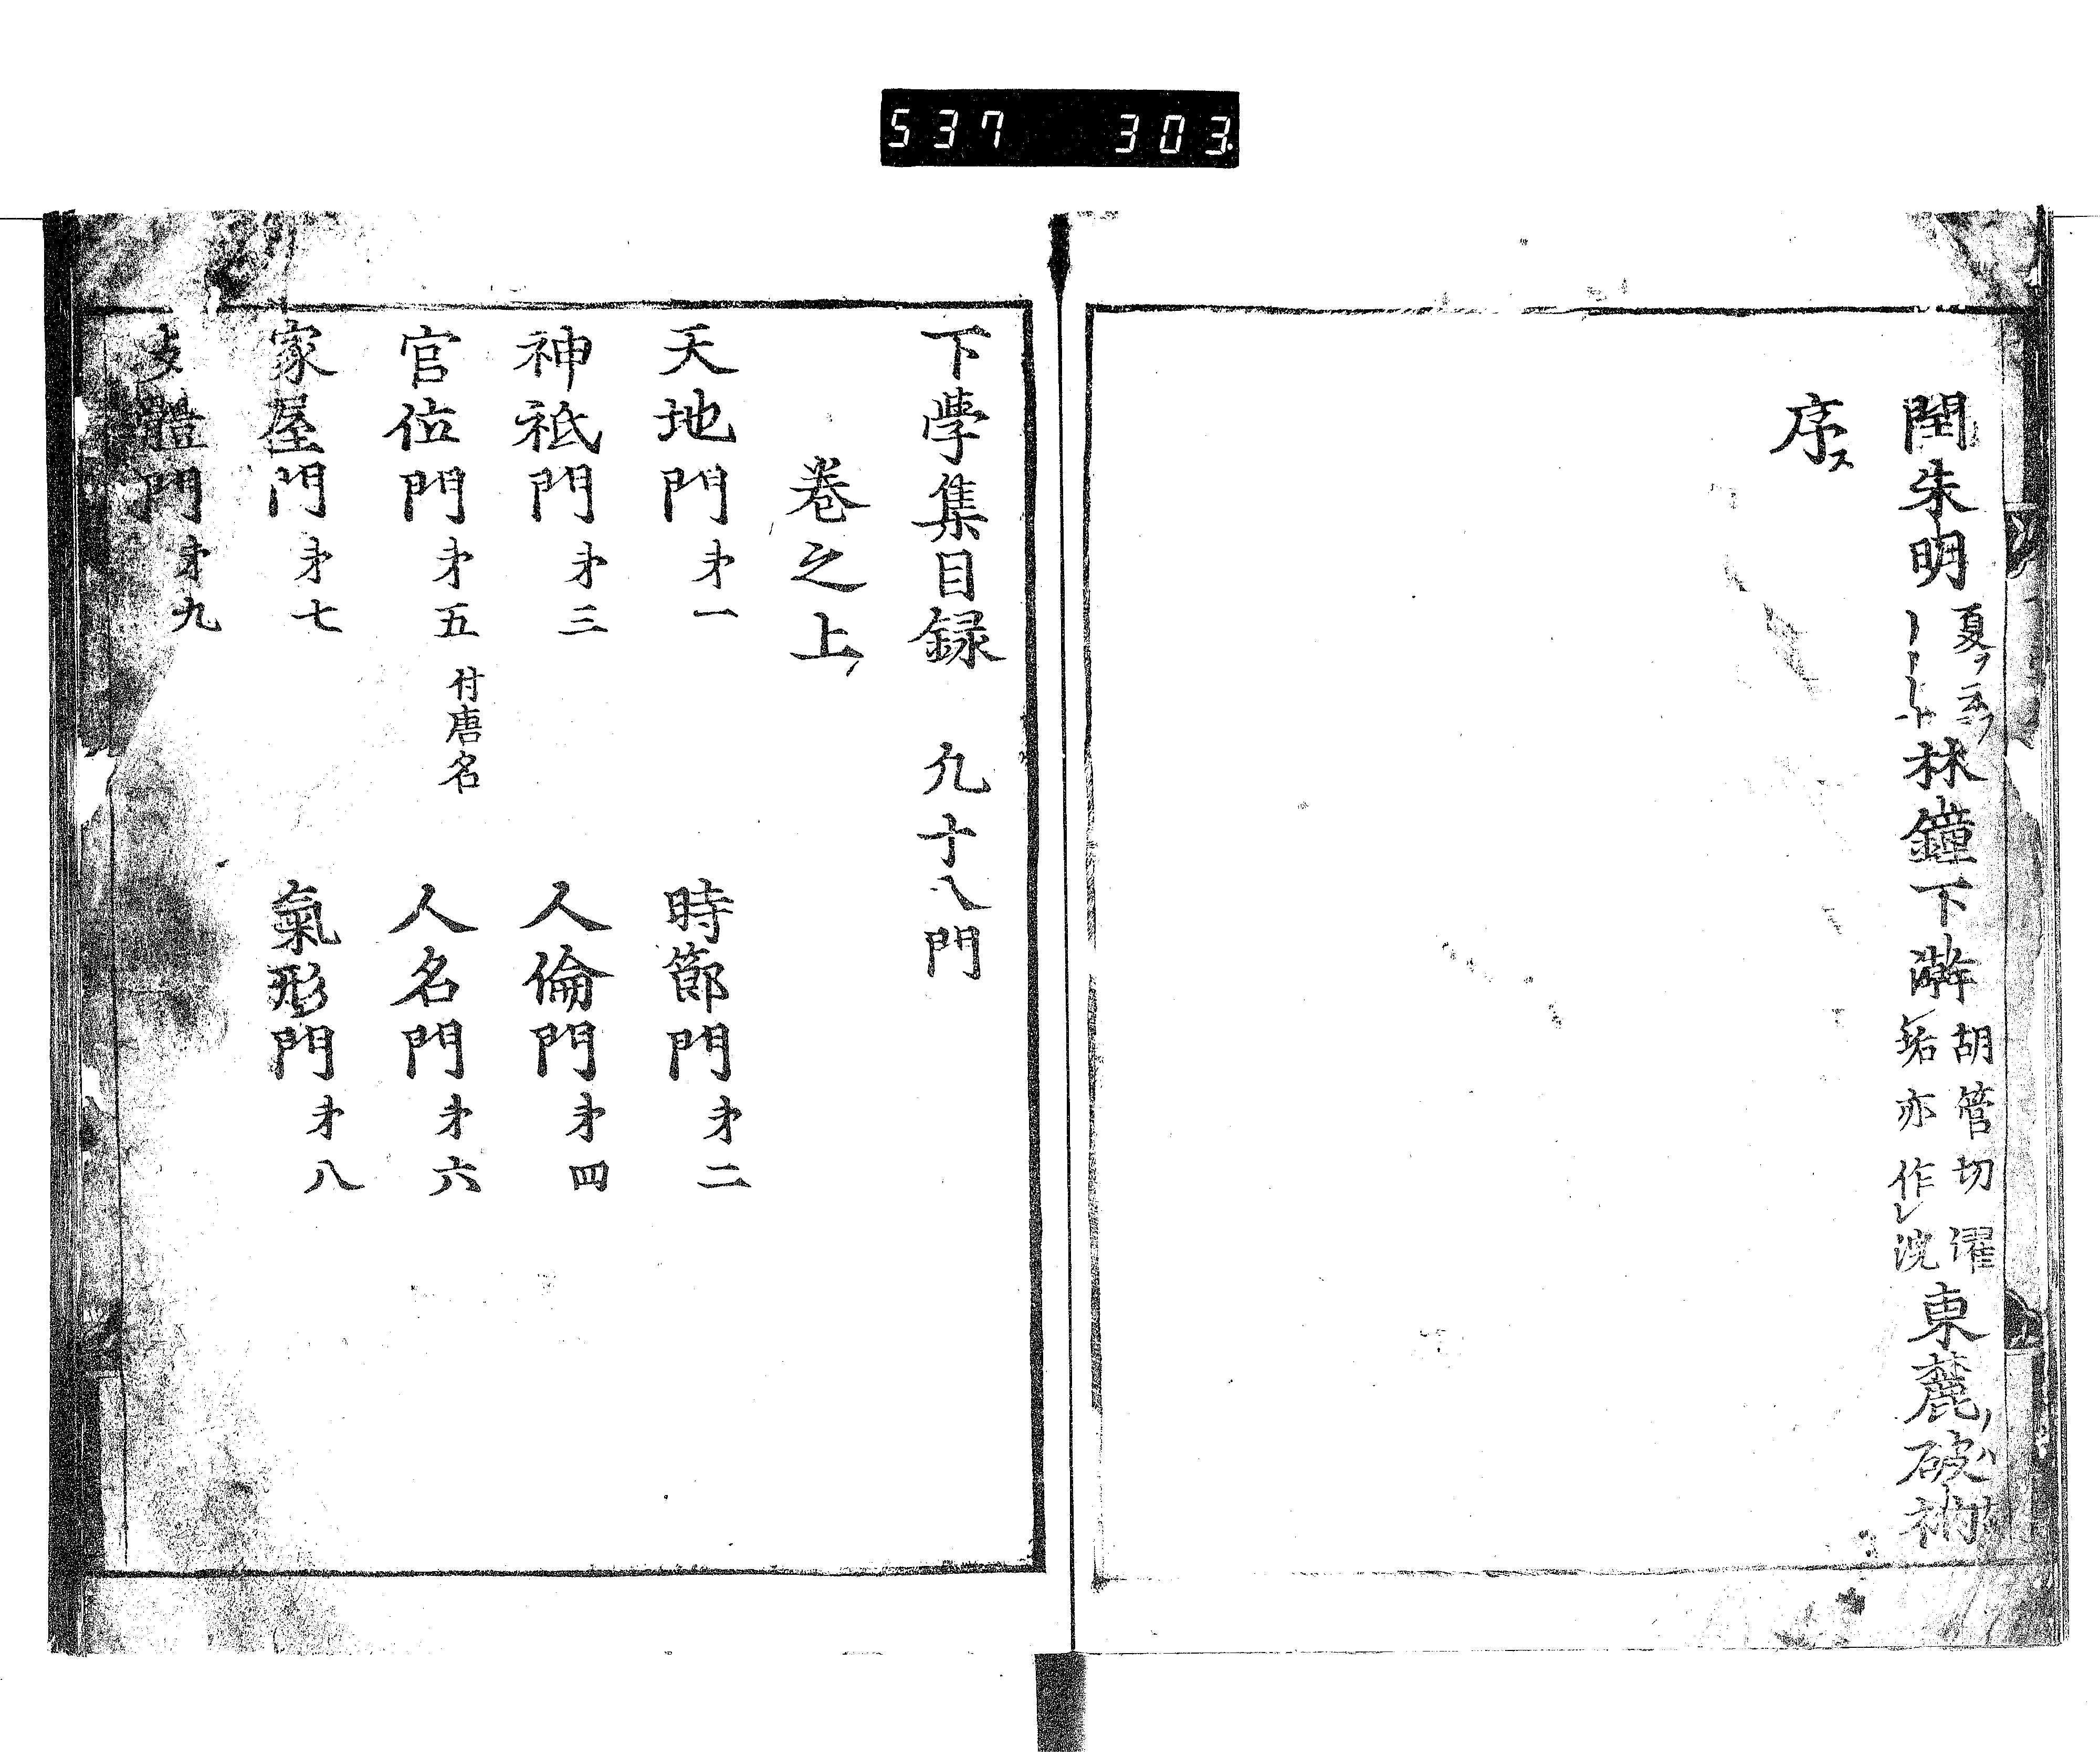 537 303
閏朱明夏ヲ云フ林鐘下澣胡管切濯
垢亦作レ浣東麓ノ破衲
序ス
下學集目録 凢十八門
巻之上
天地門㐧一 時節門㐧二
神祇門㐧三 人倫門㐧四
官位門㐧五付唐名 人名門㐧六
家屋門㐧七 氣形門㐧八
支體門㐧九